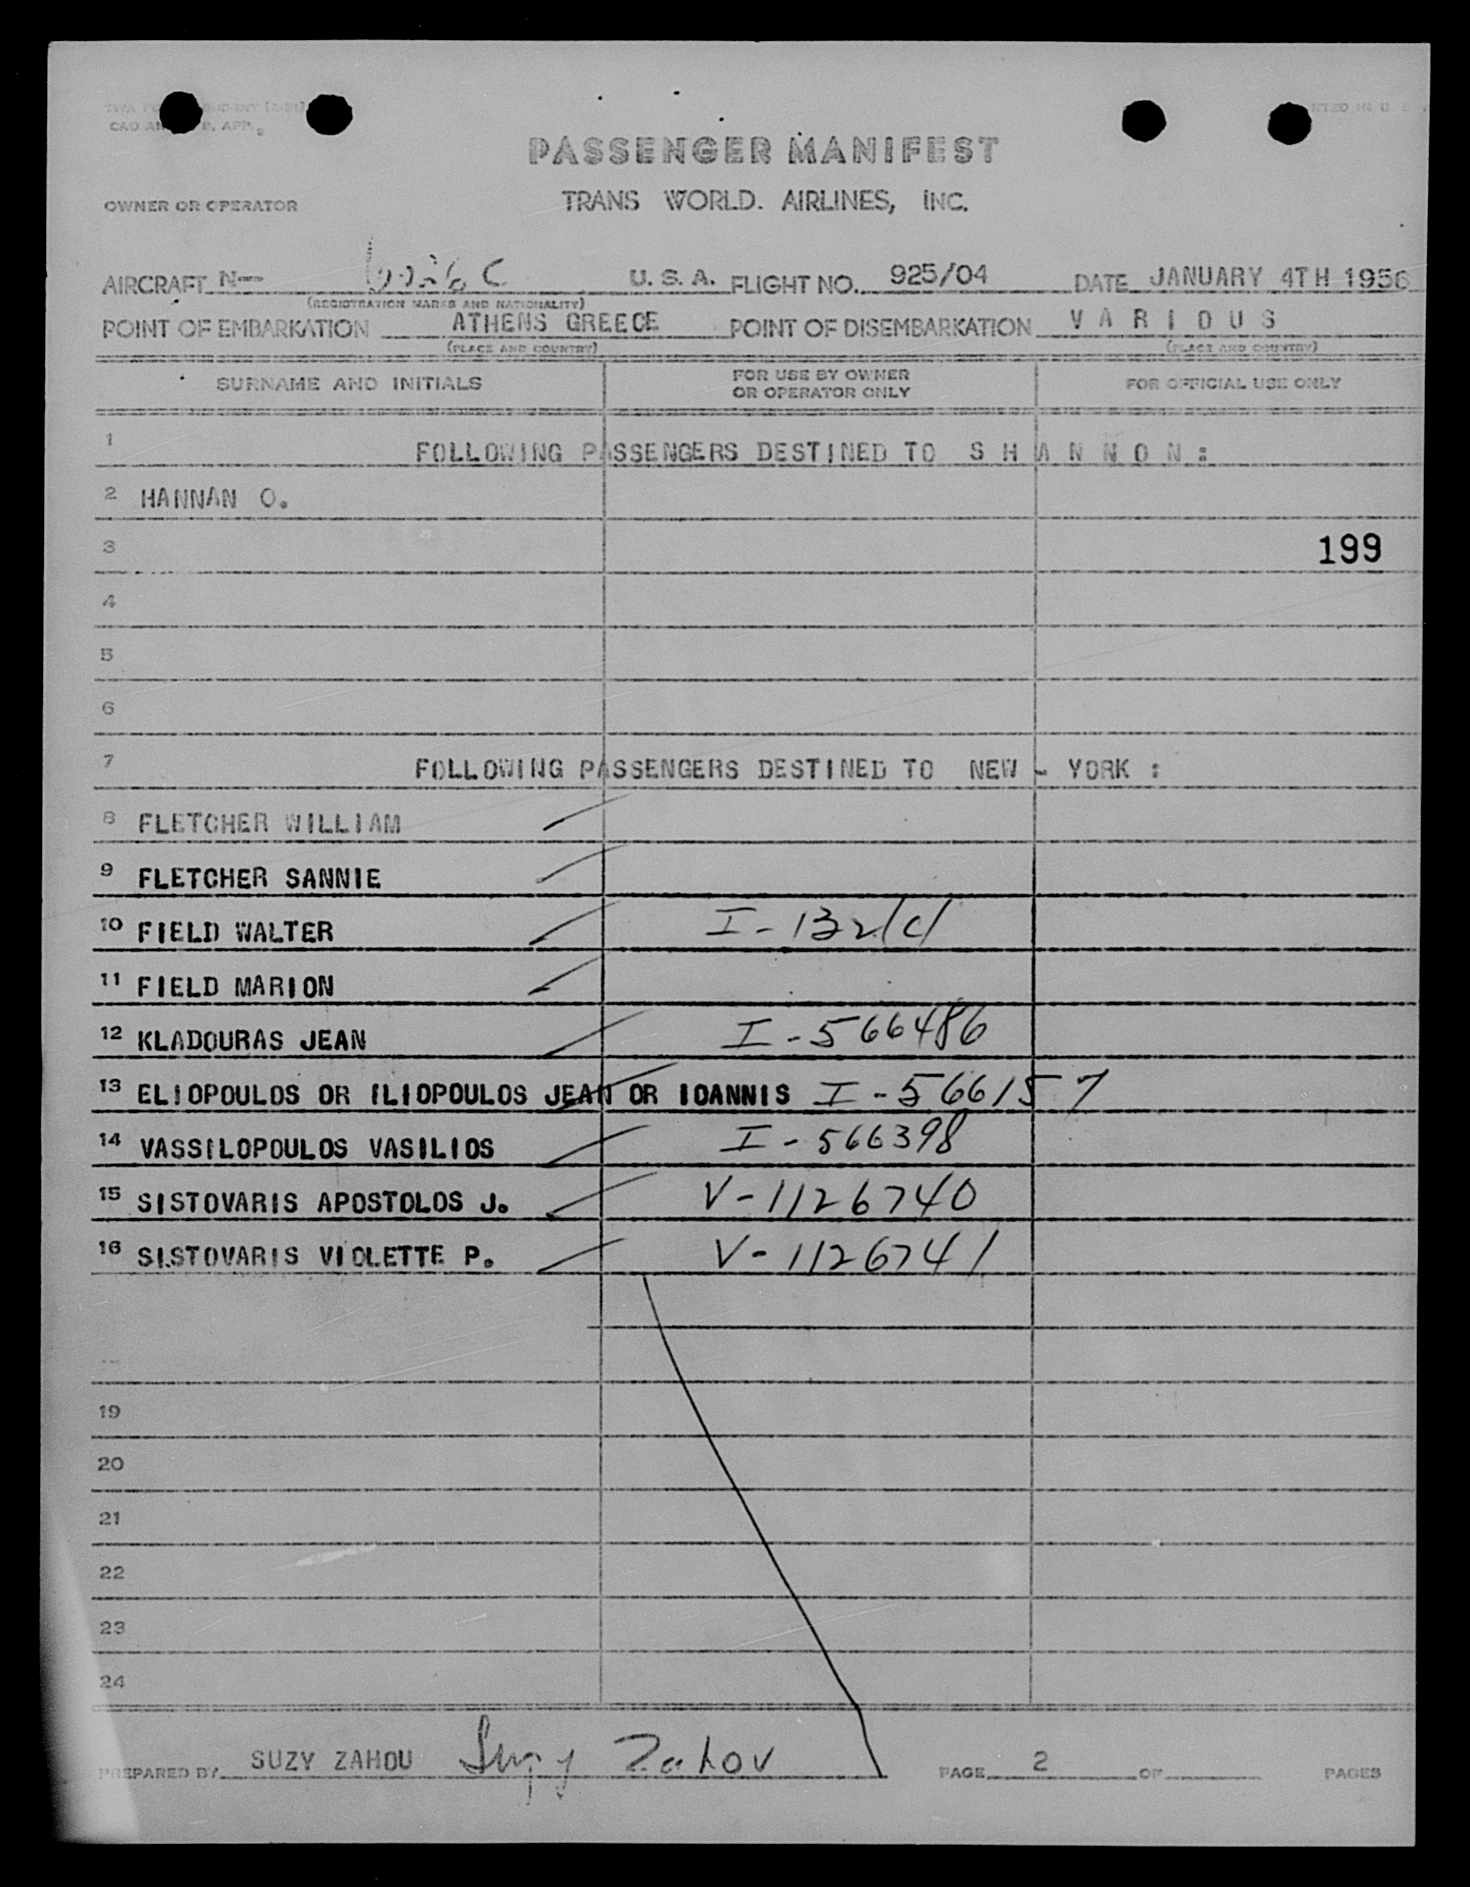 PASSENGER MANIFEST
OWNER OR OPERATOR TRANS WORLD. AIRLINES, INC.
AIRCRAFT N- U. S. A. FLIGHT NO. 925/04 DATE JANUARY 4TH 1956
(REGISTRATION MARKS AND NATIONALITY)
POINT OF EMBARKATION ATHENS GREECE POINT OF DISEMBARKATION V A R I O U S
(PLACE AND COUNTRY) (PLACE AND COUNTRY)
SURNAME AND INITIALS FOR USE BY OWNER OR OPERATOR ONLY FOR OFFICIAL USE ONLY
1 FOLLOWING PASSENGERS DESTINED TO S H A N N O N :
2 HANNAN O.
3 199
4
5
6
7 FOLLOWING PASSENGERS DESTINED TO NEW - YORK :
8 FLETCHER WILLIAM
9 FLETCHER SANNIE
10 FIELD WALTER
11 FIELD MARION
12 KLADOURAS JEAN I-566486
13 ELIOPOULOS OR ILIOPOULOS JEAN OR IOANNIS I-566157
14 VASSILOPOULOS VASILIOS I-566398
15 SISTOVARIS APOSTOLOS J. V-1126740
16 SISTOVARIS VIOLETTE P. V-1126741
19
20
21
22
23
24
PREPARED BY SUZY ZAHOU Suzy Zahov PAGE 2 OF PAGES